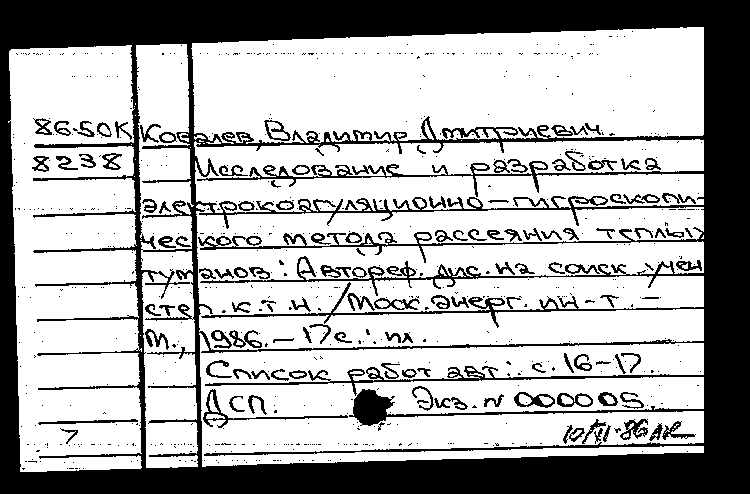 86-50К Ковалев, Владимир Дмитриевич.
8238 Исследование и разработка
электрокоагуляционно-гигроскопи-
ческого метода рассеяния теплых
туманов: Автореф. дис. на соиск учен
степ. к.т.н. / Моск. энерг. ин-т. -
М., 1986. - 17 с.: ил.
Список работ авт: с. 16-17.
ДСП. Экз. N 000005.
7
10/VI-86